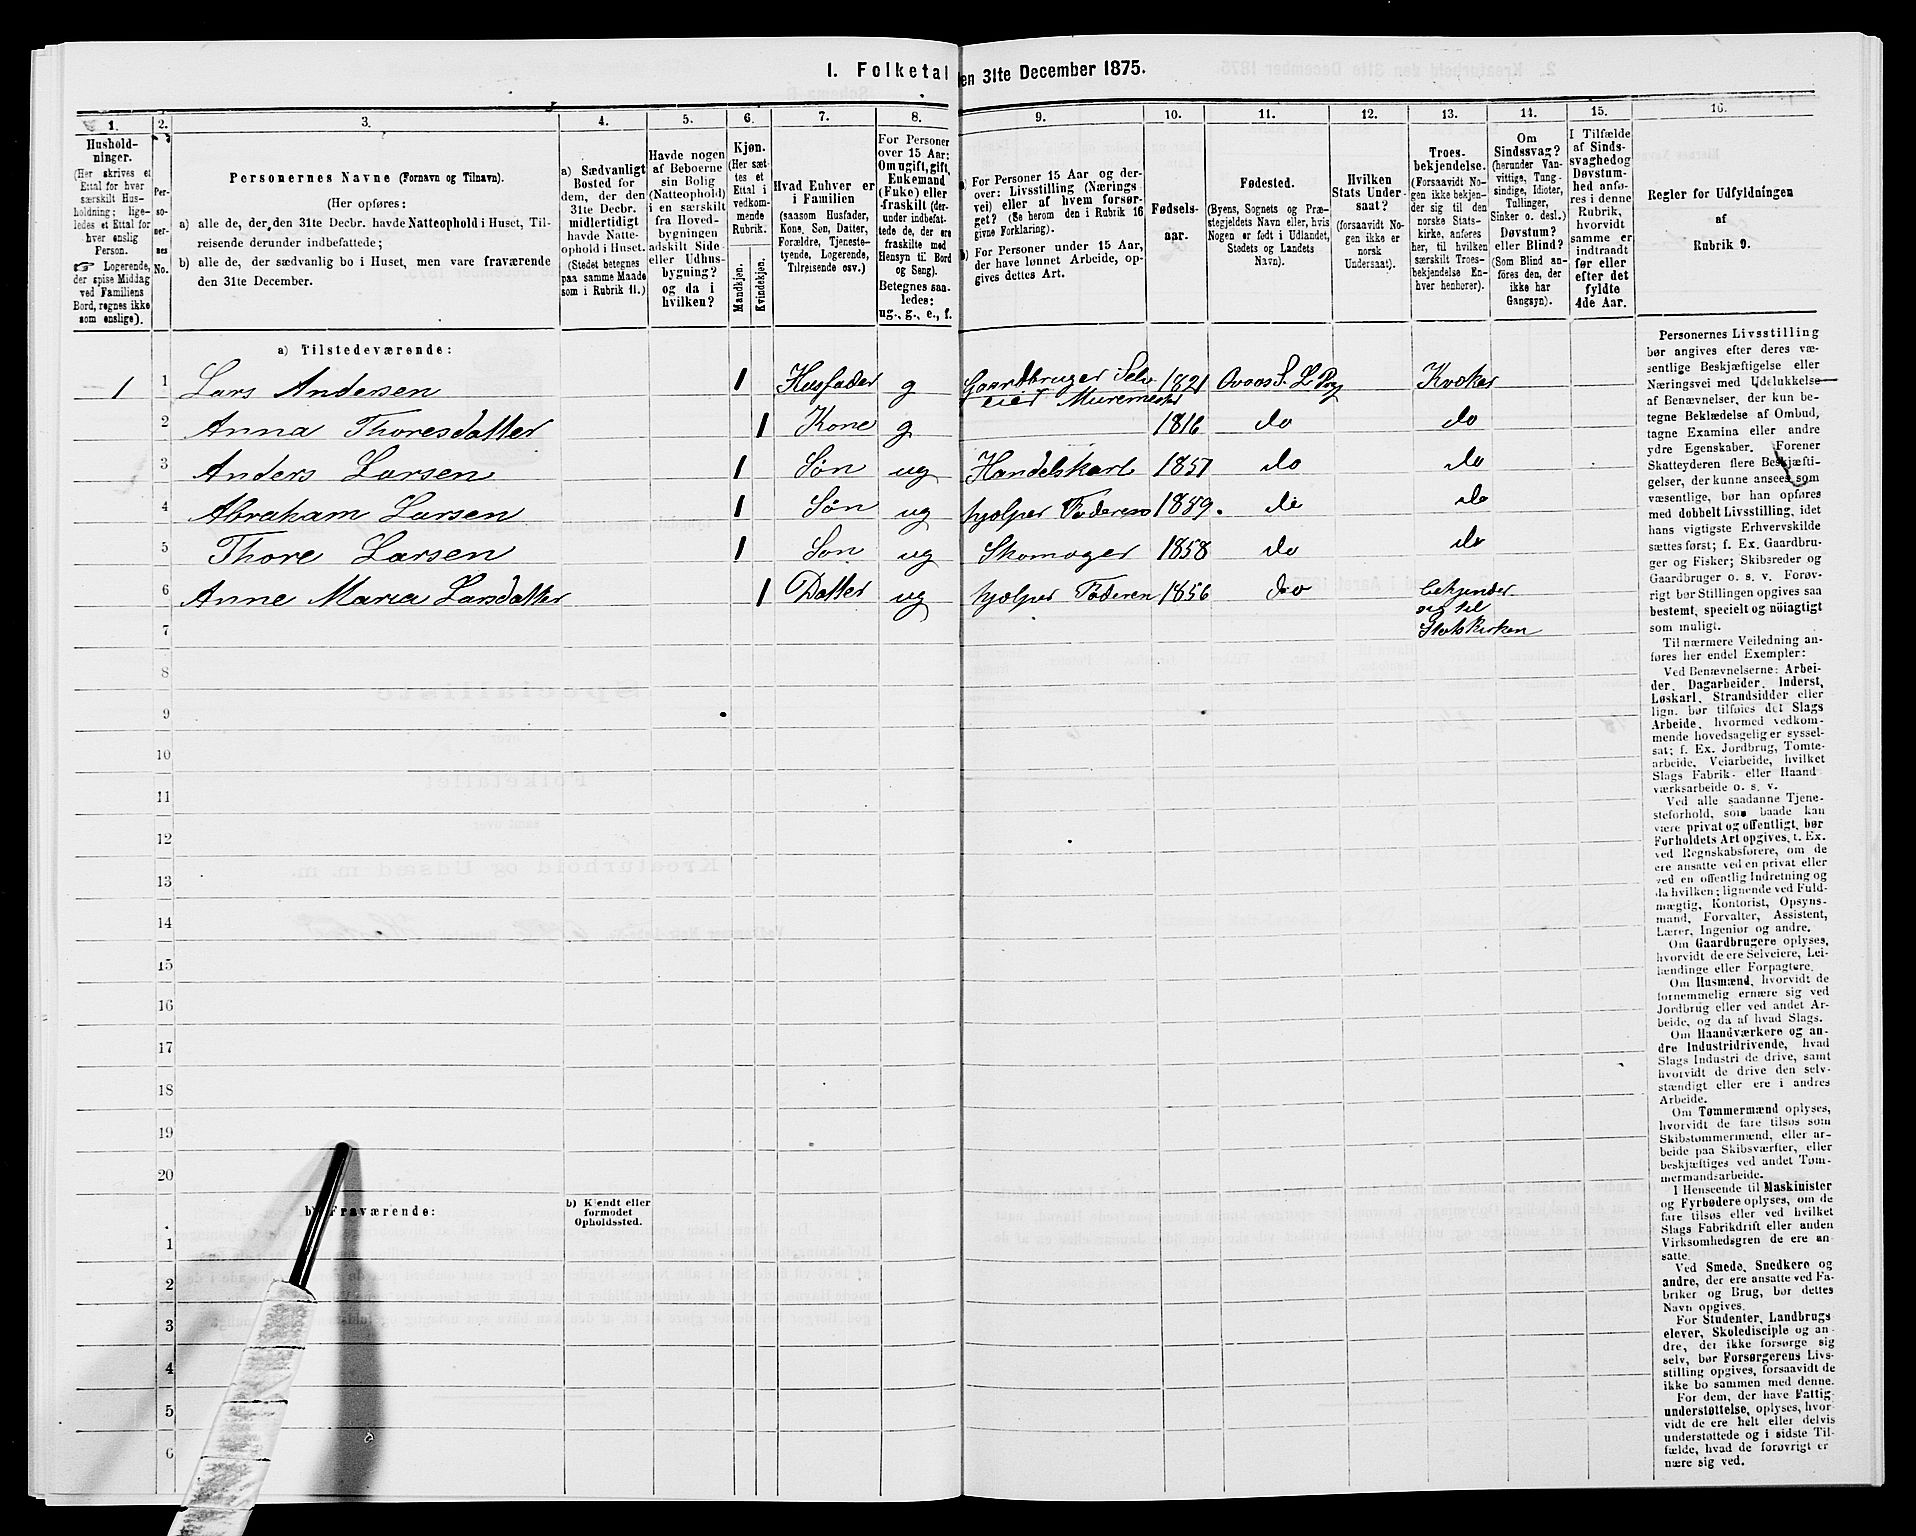 I. Folketal den 31te December 1875.
1.
2.
3.
4.
5.
6.
7.
8.
9.
10.
11.
12.
13.
14.
15.
16.
Hushold-
ninger.
(Her skrives et
Ettal for hver
særskilt Hus-
holdning; lige-
ledes et Ettal for
hver enslig
Person.
☞ Logerende,
der spise Middag
ved Familiens
Bord, regnes ikke
som enslige).
Per-
so-
ner-
nes
No.
Personernes Navne (Fornavn og Tilnavn).
(Her opføres:
a) alle de, der den 31te Decbr. havde Natteophold i Huset, Til-
reisende derunder indbefattede;
b) alle de, der sædvanlig bo i Huset, men vare fraværende
den 31te December.
a) Sædvanligt
Bosted for
dem, der den
31te Decbr.
midlertidigt
havde Natte-
ophold i Huset.
(Stedet betegnes
paa samme Maade
som i Rubrik 11.)
Havde nogen
af Beboerne
sin Bolig
(Natteophold)
i en særskilt
fra Hoved-
bygningen
adskilt Side-
eller Udhus-
bygning?
og da i
hvilken?
Kjøn.
(Her sæt-
tes et
Ettal i
vedkom-
mende
Rubrik.
Mandkjøn.
Kvindekjøn.
Hvad Enhver er
i Familien
(saasom Husfader,
Kone, Søn, Datter,
Forældre, Tjeneste-
tyende, Logerende,
Tilreisende osv.)
For Personer
over 15 Aar:
Om ugift, gift,
Enkemand
(Enke) eller
fraskilt (der-
under indbefat-
tede de, der ere
fraskilte med
Hensyn til Bord
og Seng).
Betegnes saa-
ledes:
ug., g., e., f.
a) For Personer 15 Aar og der-
over: Livsstilling (Nærings-
vei) eller af hvem forsør-
get? (Se herom den i Rubrik 16
givne Forklaring).
b) For Personer under 15 Aar,
der have lønnet Arbeide, op-
gives dettes Art.
Fødsels-
aar.
Fødested.
(Byens, Sognets og Præ-
stegjeldets Navn eller, hvis
Nogen er født i Udlandet,
Stedets og Landets
Navn).
Hvilken
Stats Under-
saat?
(forsaavidt No-
gen ikke er
norsk
Undersaat).
Troes-
bekjendelse.
(Forsaavidt No-
gen ikke bekjen-
der sig til den
norske Stats-
kirke, anføres
her, til hvilken
særskilt Troes-
bekjendelse En-
hver henhører).
Om
Sindssvag?
(herunder Van-
vittige, Tung-
sindige, Idioter,
Tullinger,
Sinker o. desl.)
Døvstum?
eller Blind?
(Som Blind an-
føres den, der
ikke har
Gangsyn).
I Tilfælde
af Sinds-
svaghed og
Døvstum-
hed anfø-
res i denne
Rubrik,
hvorvidt
samme er
indtraadt
før eller
efter det
fyldte
4de Aar.
Regler for Udfyldningen
af
Rubrik 9.
a) Tilstedeværende:
1 1 Lars Andersen 1 Husfader g Gaardbruger Selv 1821 Kvæker
eier Muremester
2 Anna Thoresdatter 1 Kone g 1816 do do
3 Anders Larsen 1 Søn ug Handelskarl 1857 do do
4 Abraham Larsen 1 Søn ug hjælper Faderen 1859. do do
5 Thore Larsen 1 Søn ug Skomager 1858 do do
6 Anne Maria Larsdatter 1 Datter ug hjælper Faderen 1856 do bekjender
sig til
Statskirken
7
8
9
10
11
12
13
14
15
16
17
18
19
20
b) Fraværende:
b) Kjendt eller
formodet
Opholdssted.
1
2
3
4
5
6
Personernes Livsstilling
bør angives efter deres væ-
sentlige Beskjæftigelse eller
Næringsvei med Udelukkelse
af Benævnelser, der kun be-
tegne Beklædelse af Ombud,
tagne Examina eller andre
ydre Egenskaber. Forener
Skatteyderen flere Beskjæfti-
gelser, der kunne ansees som
væsentlige, bør han opføres
med dobbelt Livsstilling, idet
hans vigtigste Erhvervskilde
sættes først; f. Ex. Gaardbru-
ger og Fisker; Skibsreder og
Gaardbruger o. s. v. Forøv-
rigt bør Stillingen opgives saa
bestemt, specielt og nöiagtigt
som muligt.
Til nærmere Veiledning an-
føres her endel Exempler:
Ved Benævnelserne: Arbei-
der, Dagarbeider, Inderst,
Løskarl, Strandsidder eller
lign. bør tilføies det Slags
Arbeide, hvormed vedkom-
mende hovedsagelig er syssel-
sat; f. Ex. Jordbrug, Tomte-
arbeide, Veiarbeide, hvilket
Slags Fabrik- eller Haand-
værksarbeide o. s. v.
Ved alle saadanne Tjene-
steforhold, som baade kan
være privat og offentligt, bør
Forholdets Art opgives, t. Ex.
ved Regnskabsførere, om de
ere ansatte ved en privat eller
ved en offentlig Indretning og
da hvilken; lignende ved Fuld-
mægtig, Kontorist, Opsyns-
mand, Forvalter, Assistent,
Lærer, Ingeniør og andre.
Om Gaardbrugere oplyses,
hvorvidt de ere Selveiere, Lei-
lændinge eller Forpagtere.
Om Husmænd, hvorvidt de
fornemmelig ernære sig ved
Jordbrug eller ved andet Ar-
beide, og da af hvad Slags.
Om Haandværkere og an-
dre Industridrivende, hvad
Slags Industri de drive, samt
hvorvidt de drive den selv-
stændigt eller ere i andres
Arbeide.
Om Tømmermænd oplyses,
hvorvidt de fare tilsøs som
Skibstømmermænd, eller ar-
beide paa Skibsværfter, eller
beskjæftiges ved andet Tøm-
mermandsarbeide.
I Henseende til Maskinister
og Fyrbødere oplyses, om de
fare tilsøs eller ved hvilket
Slags Fabrikdrift eller anden
Virksomhedsgren de ere an-
satte.
Ved Smede, Snedkere og
andre, der ere ansatte ved Fa-
briker og Brug, bør dettes
Navn opgives.
For Studenter, Landbrugs-
elever, Skoledisciple og an-
dre, der ikke forsørge sig
selv, bør Forsørgerens Livs-
stilling opgives, forsaavidt de
ikke bo sammen med denne.
For dem, der have Fattig-
understøttelse, oplyses, hvor-
vidt de ere helt eller delvis
understøttede og i sidste Til-
fælde, hvad de forøvrigt er-
nære sig ved.